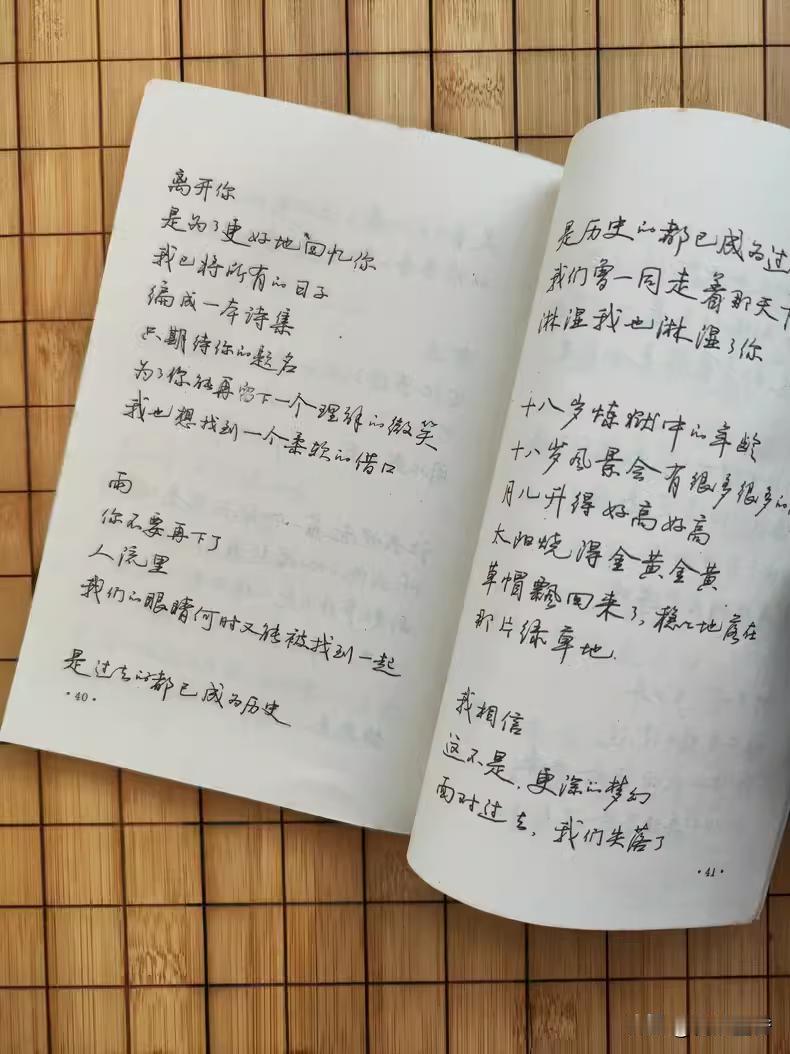 离开你
是为了更好地回忆你
我已将所有的日子
编成一本诗集
只期待你的题名
为了你能再留下一个理解的微笑
我也想找到一个柔软的借口
雨
你不要再下了
人流里
我们的眼睛何时又能被找到一起
是过去的都已成为历史
·40·
是历史的都已成为过
我们曾一同走着那天下
淋湿我也淋湿了你
十八岁炼狱中的年龄
十八岁风景会有很多很多的
月儿升得好高好高
太阳烧得金黄金黄
草帽飘回来了，稳稳地落在
那片绿草地.
我相信
这不是，更深的梦幻
面对过去，我们失落了
·41·